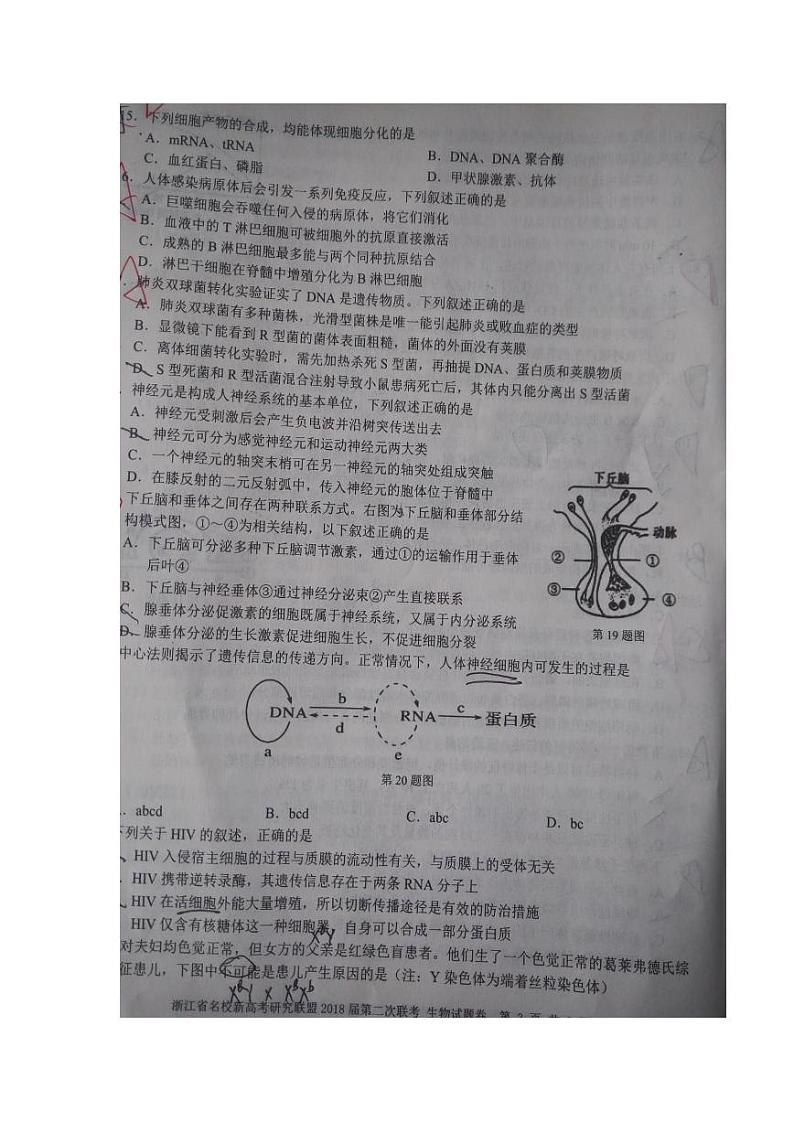 15. 下列细胞产物的合成，均能体现细胞分化的是
A. mRNA、tRNA
B. DNA、DNA 聚合酶
C. 血红蛋白、磷脂
D. 甲状腺激素、抗体
6. 人体感染病原体后会引发一系列免疫反应，下列叙述正确的是
A. 巨噬细胞会吞噬任何入侵的病原体，将它们消化
B. 血液中的 T 淋巴细胞可被细胞外的抗原直接激活
C. 成熟的 B 淋巴细胞最多能与两个同种抗原结合
D. 淋巴干细胞在脊髓中增殖分化为 B 淋巴细胞
. 肺炎双球菌转化实验证实了 DNA 是遗传物质。下列叙述正确的是
A. 肺炎双球菌有多种菌株，光滑型菌株是唯一能引起肺炎或败血症的类型
B. 显微镜下能看到 R 型菌的菌体表面粗糙，菌体的外面没有荚膜
C. 离体细菌转化实验时，需先加热杀死 S 型菌，再抽提 DNA、蛋白质和荚膜物质
D. S 型死菌和 R 型活菌混合注射导致小鼠患病死亡后，其体内只能分离出 S 型活菌
. 神经元是构成人神经系统的基本单位，下列叙述正确的是
A. 神经元受刺激后会产生负电波并沿树突传送出去
B. 神经元可分为感觉神经元和运动神经元两大类
C. 一个神经元的轴突末梢可在另一神经元的轴突处组成突触
D. 在膝反射的二元反射弧中，传入神经元的胞体位于脊髓中
下丘脑和垂体之间存在两种联系方式。右图为下丘脑和垂体部分结
构模式图，①～④为相关结构，以下叙述正确的是
A. 下丘脑可分泌多种下丘脑调节激素，通过①的运输作用于垂体
后叶④
B. 下丘脑与神经垂体③通过神经分泌束②产生直接联系
C. 腺垂体分泌促激素的细胞既属于神经系统，又属于内分泌系统
D. 腺垂体分泌的生长激素促进细胞生长，不促进细胞分裂
下丘脑
动脉
② ①
③ ④
第 19 题图
中心法则揭示了遗传信息的传递方向。正常情况下，人体神经细胞内可发生的过程是
DNA b d RNA c 蛋白质
a e
第 20 题图
. abcd
B. bcd
C. abc
D. bc
下列关于 HIV 的叙述，正确的是
HIV 入侵宿主细胞的过程与质膜的流动性有关，与质膜上的受体无关
. HIV 携带逆转录酶，其遗传信息存在于两条 RNA 分子上
HIV 在活细胞外能大量增殖，所以切断传播途径是有效的防治措施
HIV 仅含有核糖体这一种细胞器，自身可以合成一部分蛋白质
XᴮY
对夫妇均色觉正常，但女方的父亲是红绿色盲患者。他们生了一个色觉正常的葛莱弗德氏综
征患儿，下图中不可能是患儿产生原因的是（注：Y 染色体为端着丝粒染色体）
XᴮY × XᴮXᵇ
浙江省名校新高考研究联盟 2018 届第二次联考 生物试题卷 第